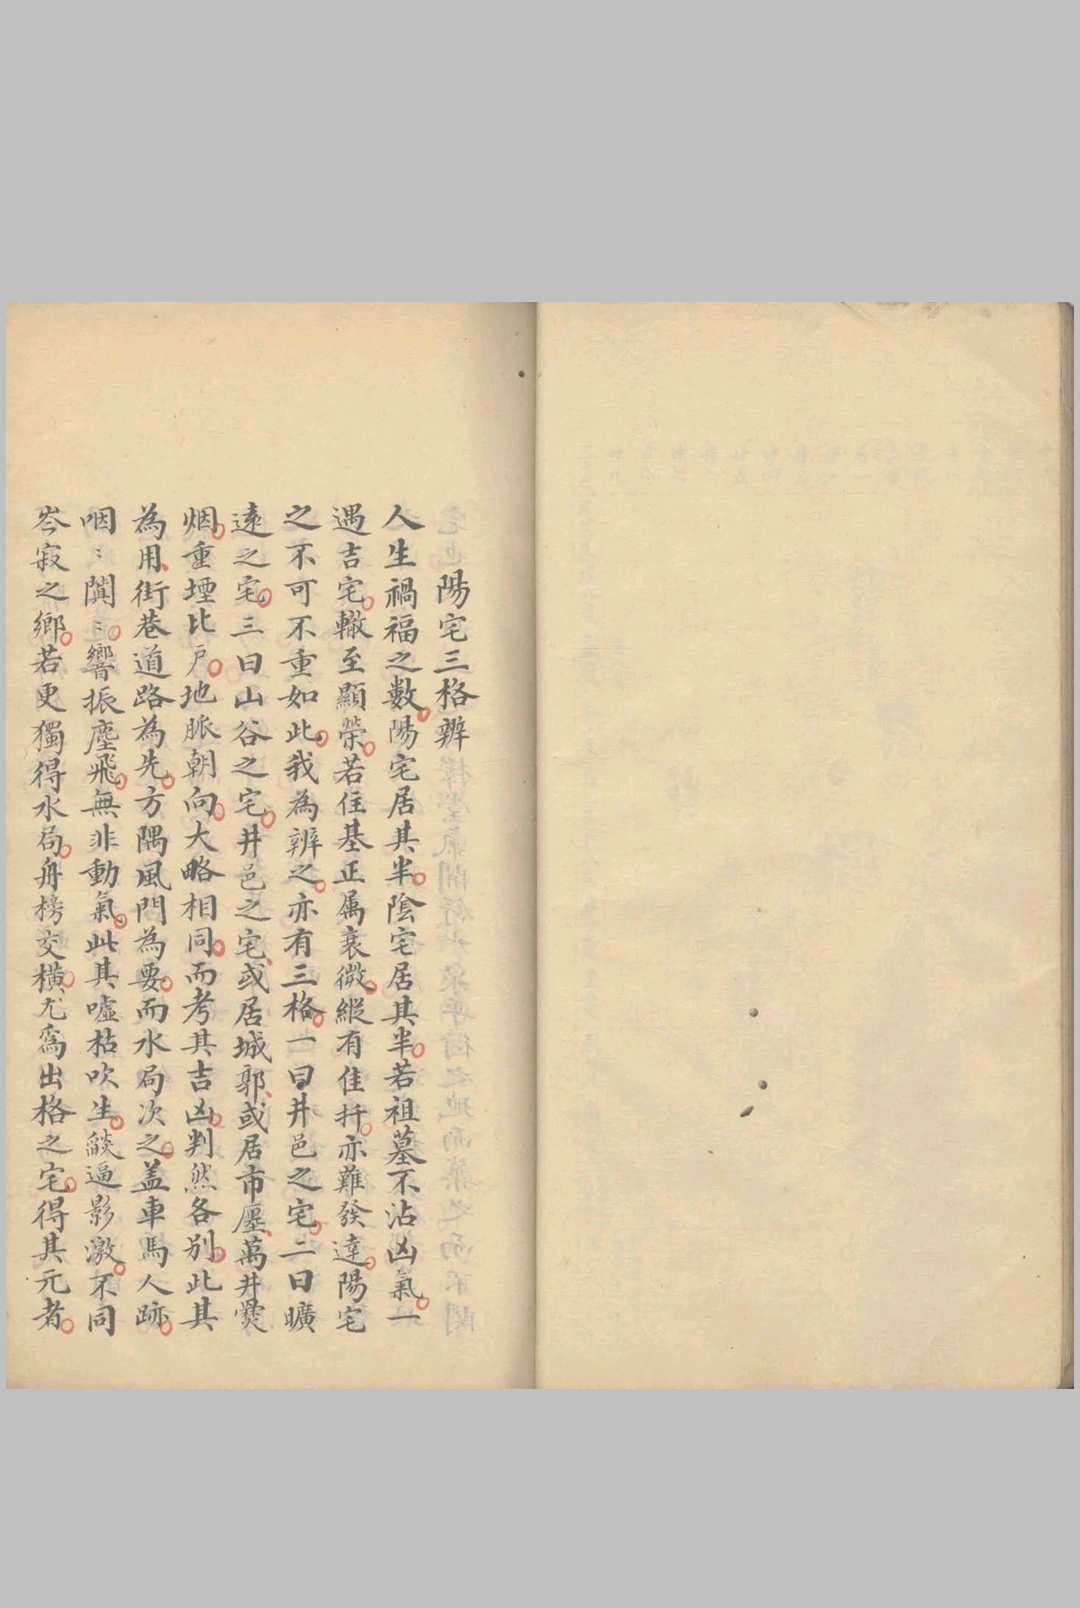 陽宅三格辨
人生禍福之數陽宅居其半陰宅居其半若祖墓不沾凶氣一
遇吉宅轍至顯榮若住基正属衰微縱有佳扦亦難發達陽宅
之不可不重如此我為辨之亦有三格一曰井邑之宅二曰曠
遠之宅三曰山谷之宅井邑之宅或居城郭或居市廛萬井爨
烟重堙比戶地脈朝向大略相同而考其吉凶判然各別此其
為用街巷道路為先方隅風門為要而水局次之盖車馬人跡
咽〻闐〻響振塵飛無非動氣此其噓枯吹生燄逼影激不同
岑寂之鄉若更獨得水局舟榜交橫尤為出格之宅得其元者